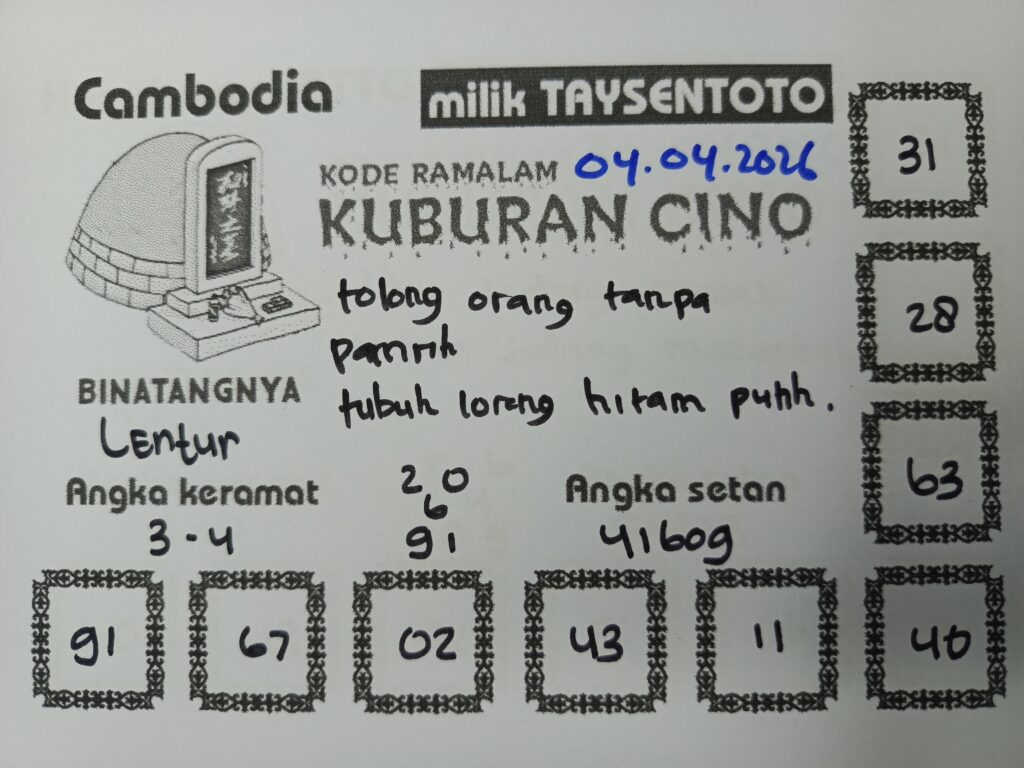 Cambodia
milik TAYSENTOTO
KODE RAMALAM 04.04.2026
KUBURAN CINO
tolong orang tanpa
pamrih
tubuh loreng hitam putih.
BINATANGNYA
Lentur
Angka keramat
3-4
2 0
6
91
Angka setan
41609
31
28
63
91 67 02 43 11 40